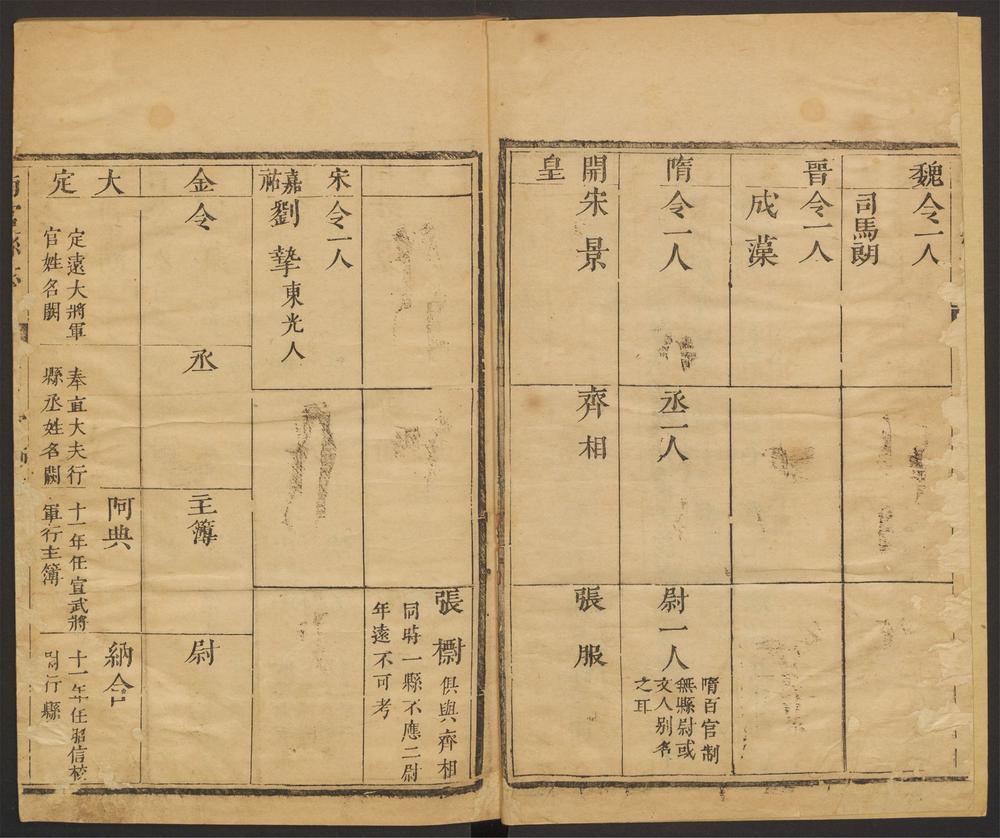 魏令一人
司馬朗
晉令一人
成藻
隋令一人
丞一人
尉一人
隋百官制
無縣尉或
文人别名
之耳
開皇
宋景
齊相
張服
張檦
俱與齊相
同時一縣不應二尉
年遠不可考
宋令一人
嘉祐
劉摯東光人
金令
丞
主簿
尉
大定
定遠大將軍
官姓名闕
奉直大夫行
縣丞姓名闕
阿典
十一年任宣武將
軍行主簿
納合
十一年任昭信校
行縣